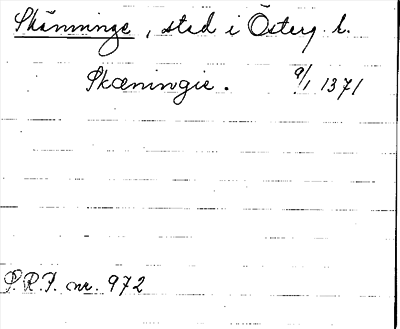 Skänninge, stad i Österg. l.
Skæningie. 9/1 1371
S.R.P. nr. 972